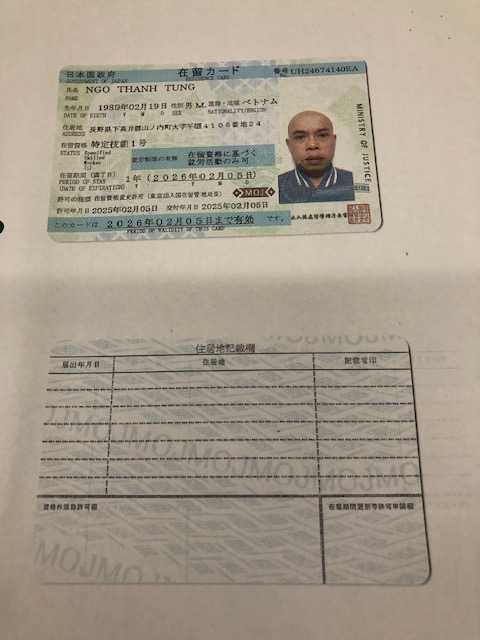 日本国政府 在留カード 番号 UH24674140EA
GOVERNMENT OF JAPAN RESIDENCE CARD
氏名 NGO THANH TUNG
NAME
生年月日 1989年02月19日 性別 男 M. 国籍・地域 ベトナム
DATE OF BIRTH Y M D SEX NATIONALITY/REGION
住居地 長野県下高井郡山ノ内町大字平穏4106番地24
ADDRESS
在留資格 特定技能1号
STATUS Specified
Skilled
Worker
(i)
就労制限の有無 在留資格に基づく
就労活動のみ可
在留期間（満了日） 1年（2026年02月05日）
PERIOD OF STAY
(DATE OF EXPIRATION) Y M D
MOJ
許可の種類 在留資格変更許可（東京出入国在留管理局長）
許可年月日 2025年02月05日 交付年月日 2025年02月05日
このカードは 2026年02月05日まで有効 です。
PERIOD OF VALIDITY OF THIS CARD
MINISTRY OF JUSTICE
出入国在留管理庁長官
住居地記載欄
届出年月日 住居地 記載者印
資格外活動許可欄 在留期間更新等許可申請欄